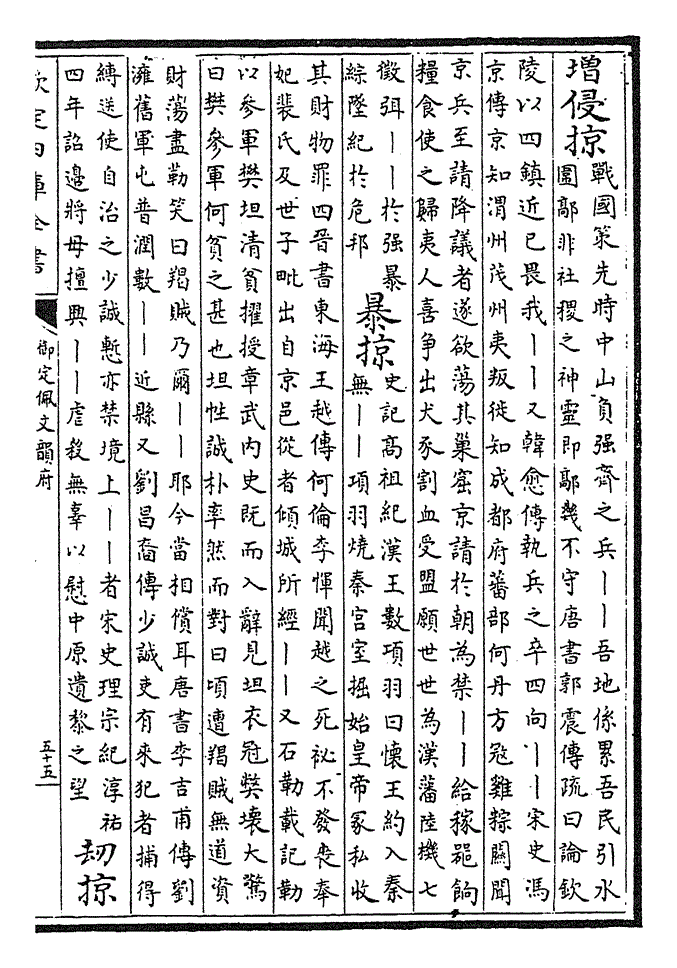 增侵掠
戰國策先時中山負强齊之兵丨丨吾地係累吾民引水
圍鄗非社稷之神靈即鄗幾不守唐書郭震傳疏曰論欽
陵以四鎮近已畏我丨丨又韓愈傳執兵之卒四向丨丨宋史馮
京傳京知渭州茂州夷叛徙知成都府蕃部何丹方冦雞粽關聞
京兵至請降議者遂欲蕩其巢窟京請於朝為禁丨丨給稼噐餉
糧食使之歸夷人喜争出犬豕割血受盟願世世為漢藩陸機七
徵弭丨丨於强暴
綜墜紀於危邦
暴掠
史記髙祖紀漢王數項羽曰懷王約入秦
無丨丨項羽燒秦宫室掘始皇帝冢私收
其財物罪四晉書東海王越傳何倫李惲聞越之死祕不發喪奉
妃裴氏及世子毗出自京邑從者傾城所經丨丨又石勒載記勒
以參軍樊坦清貧擢授章武内史既而入辭見坦衣冠弊壞大驚
曰樊參軍何貧之甚也坦性誠朴率然而對曰頃遭羯賊無道資
財蕩盡勒笑曰羯賊乃爾丨丨耶今當相償耳唐書李吉甫傳劉
澭舊軍屯普潤數丨丨近縣又劉昌裔傳少誠吏有來犯者捕得
縳送使自治之少誠慙亦禁境上丨丨者宋史理宗紀淳祐
四年詔邊將毋擅興丨丨虐殺無辜以慰中原遺黎之望
刼掠
欽定四庫全書
御定佩文韻府
五十五